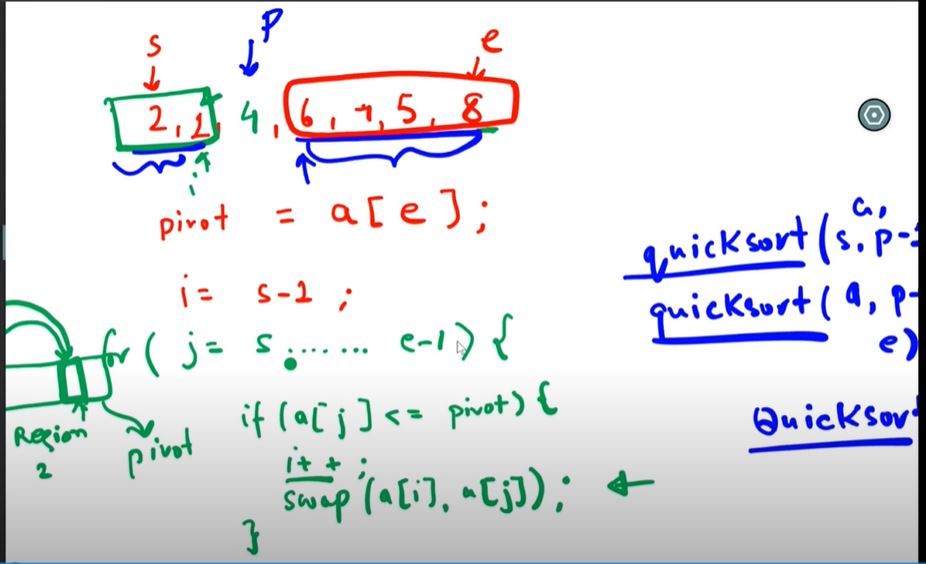 p
s e
2, 1, 4, 6, 7, 5, 8
i
pivot = a[e];
i= s-1 ;
for ( j= s ....... e-1) {
if (a[j] <= pivot) {
i++;
swap (a[i], a[j]);
}
Region
2
pivot
quicksort (a,
s, p-1
quicksort ( a, p-
e)
Quicksor